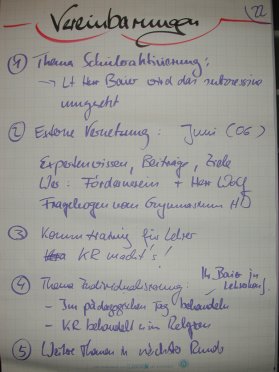 Vereinbarungen
22
① Thema Schüleraktivierung:
→ Lt Herr Baier wird das
umgeht
② Externe Vernetzung: Juni (06)
Expertenwissen, Beiträge, Ziele
Wer: Förderverein + Herr Wolf
Fragebogen vom Gymnasium HD
③ Kommtraining für Lehrer
KR macht's!
④ Thema Individualisierung
Hr. Baier in
- Im pädagogischen Tag behandeln
- KR behandelt's in Religion
⑤ Weitere Themen in nächster Runde